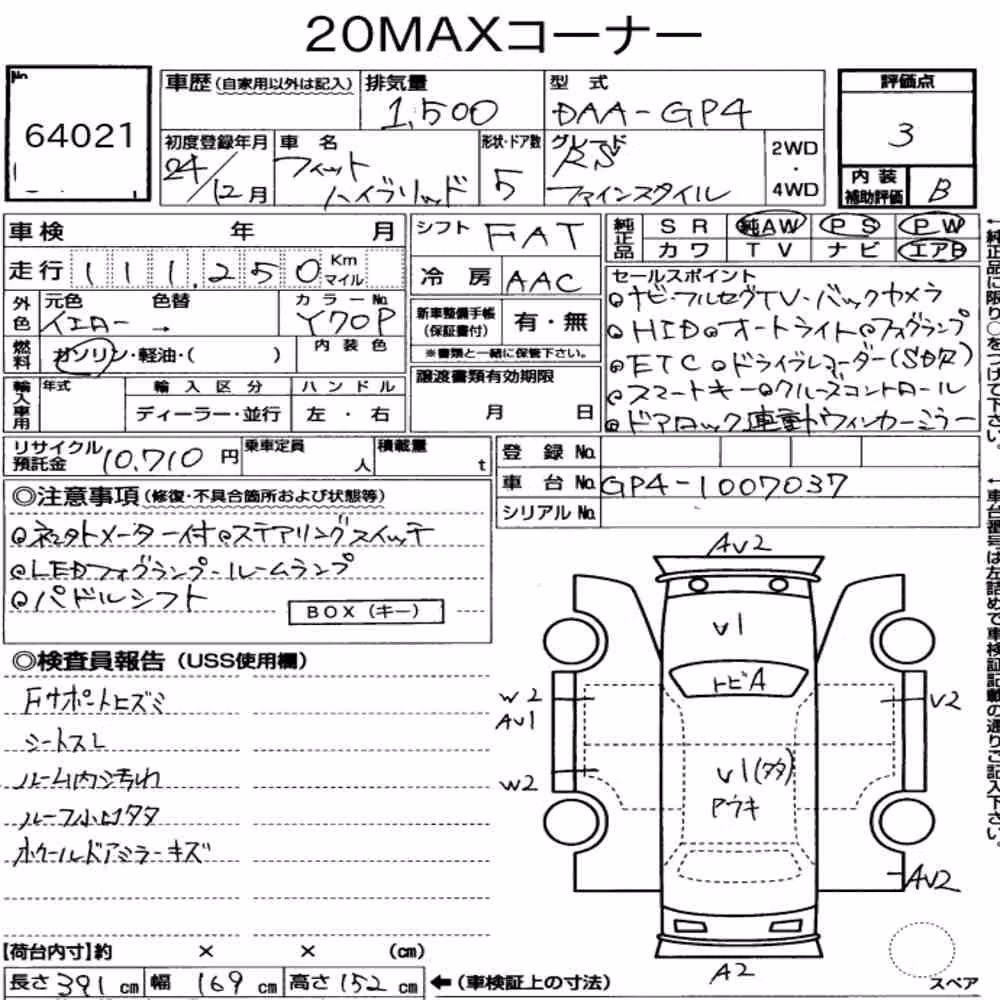 20MAXコーナー
No.
64021
車歴(自家用以外は記入)
排気量
1,500
型式
DAA-GP4
評価点
3
内装
補助評価
B
初度登録年月
24/12月
車名
フィット
ハイブリッド
形状・ドア数
5
グレード
RS
ファインスタイル
2WD
・
4WD
車検 年 月
走行 111,250 Km
マイル
シフト FAT
冷房 AAC
純正品
SR 純AW PS PW
カワ TV ナビ エアB
外色
元色 色替
イエロー →
カラーNo.
Y70P
燃料
ガソリン・軽油・( )
内装色
新車整備手帳
(保証書付)
有・無
※書類と一緒に保管下さい。
セールスポイント
◎ナビ・フルセグTV・バックカメラ
◎HID◎オートライト◎フォグランプ
◎ETC◎ドライブレコーダー(SD欠)
◎スマートキー◎クルーズコントロール
◎ドアロック連動ウィンカーミラー
輸入車用
年式
輸入区分
ディーラー・並行
ハンドル
左・右
譲渡書類有効期限
月 日
リサイクル
預託金 10,710円
乗車定員
人
積載量
t
登録No.
車台No. GP4-1007037
シリアルNo.
◎注意事項(修復・不具合箇所および状態等)
メーター付◎ステアリングスイッチ
◎LEDフォグランプ・ルームランプ
◎パドルシフト
BOX(キー)
◎検査員報告(USS使用欄)
Fサポートヒズミ
シートスレ
ルーム内シ汚れ
ルーフ小凹タタ
ホイールドアミラーキズ
AV2
V1
トビA
W2
AV1
V2
W2
V1(タタ)
Pウキ
AV2
A2
スペア
【荷台内寸】約 × × (cm)
長さ391cm 幅169cm 高さ152cm ←(車検証上の寸法)
←純正品に限り○をつけて下さい。
←車台番号は左詰めで車検証記載の通りご記入下さい。